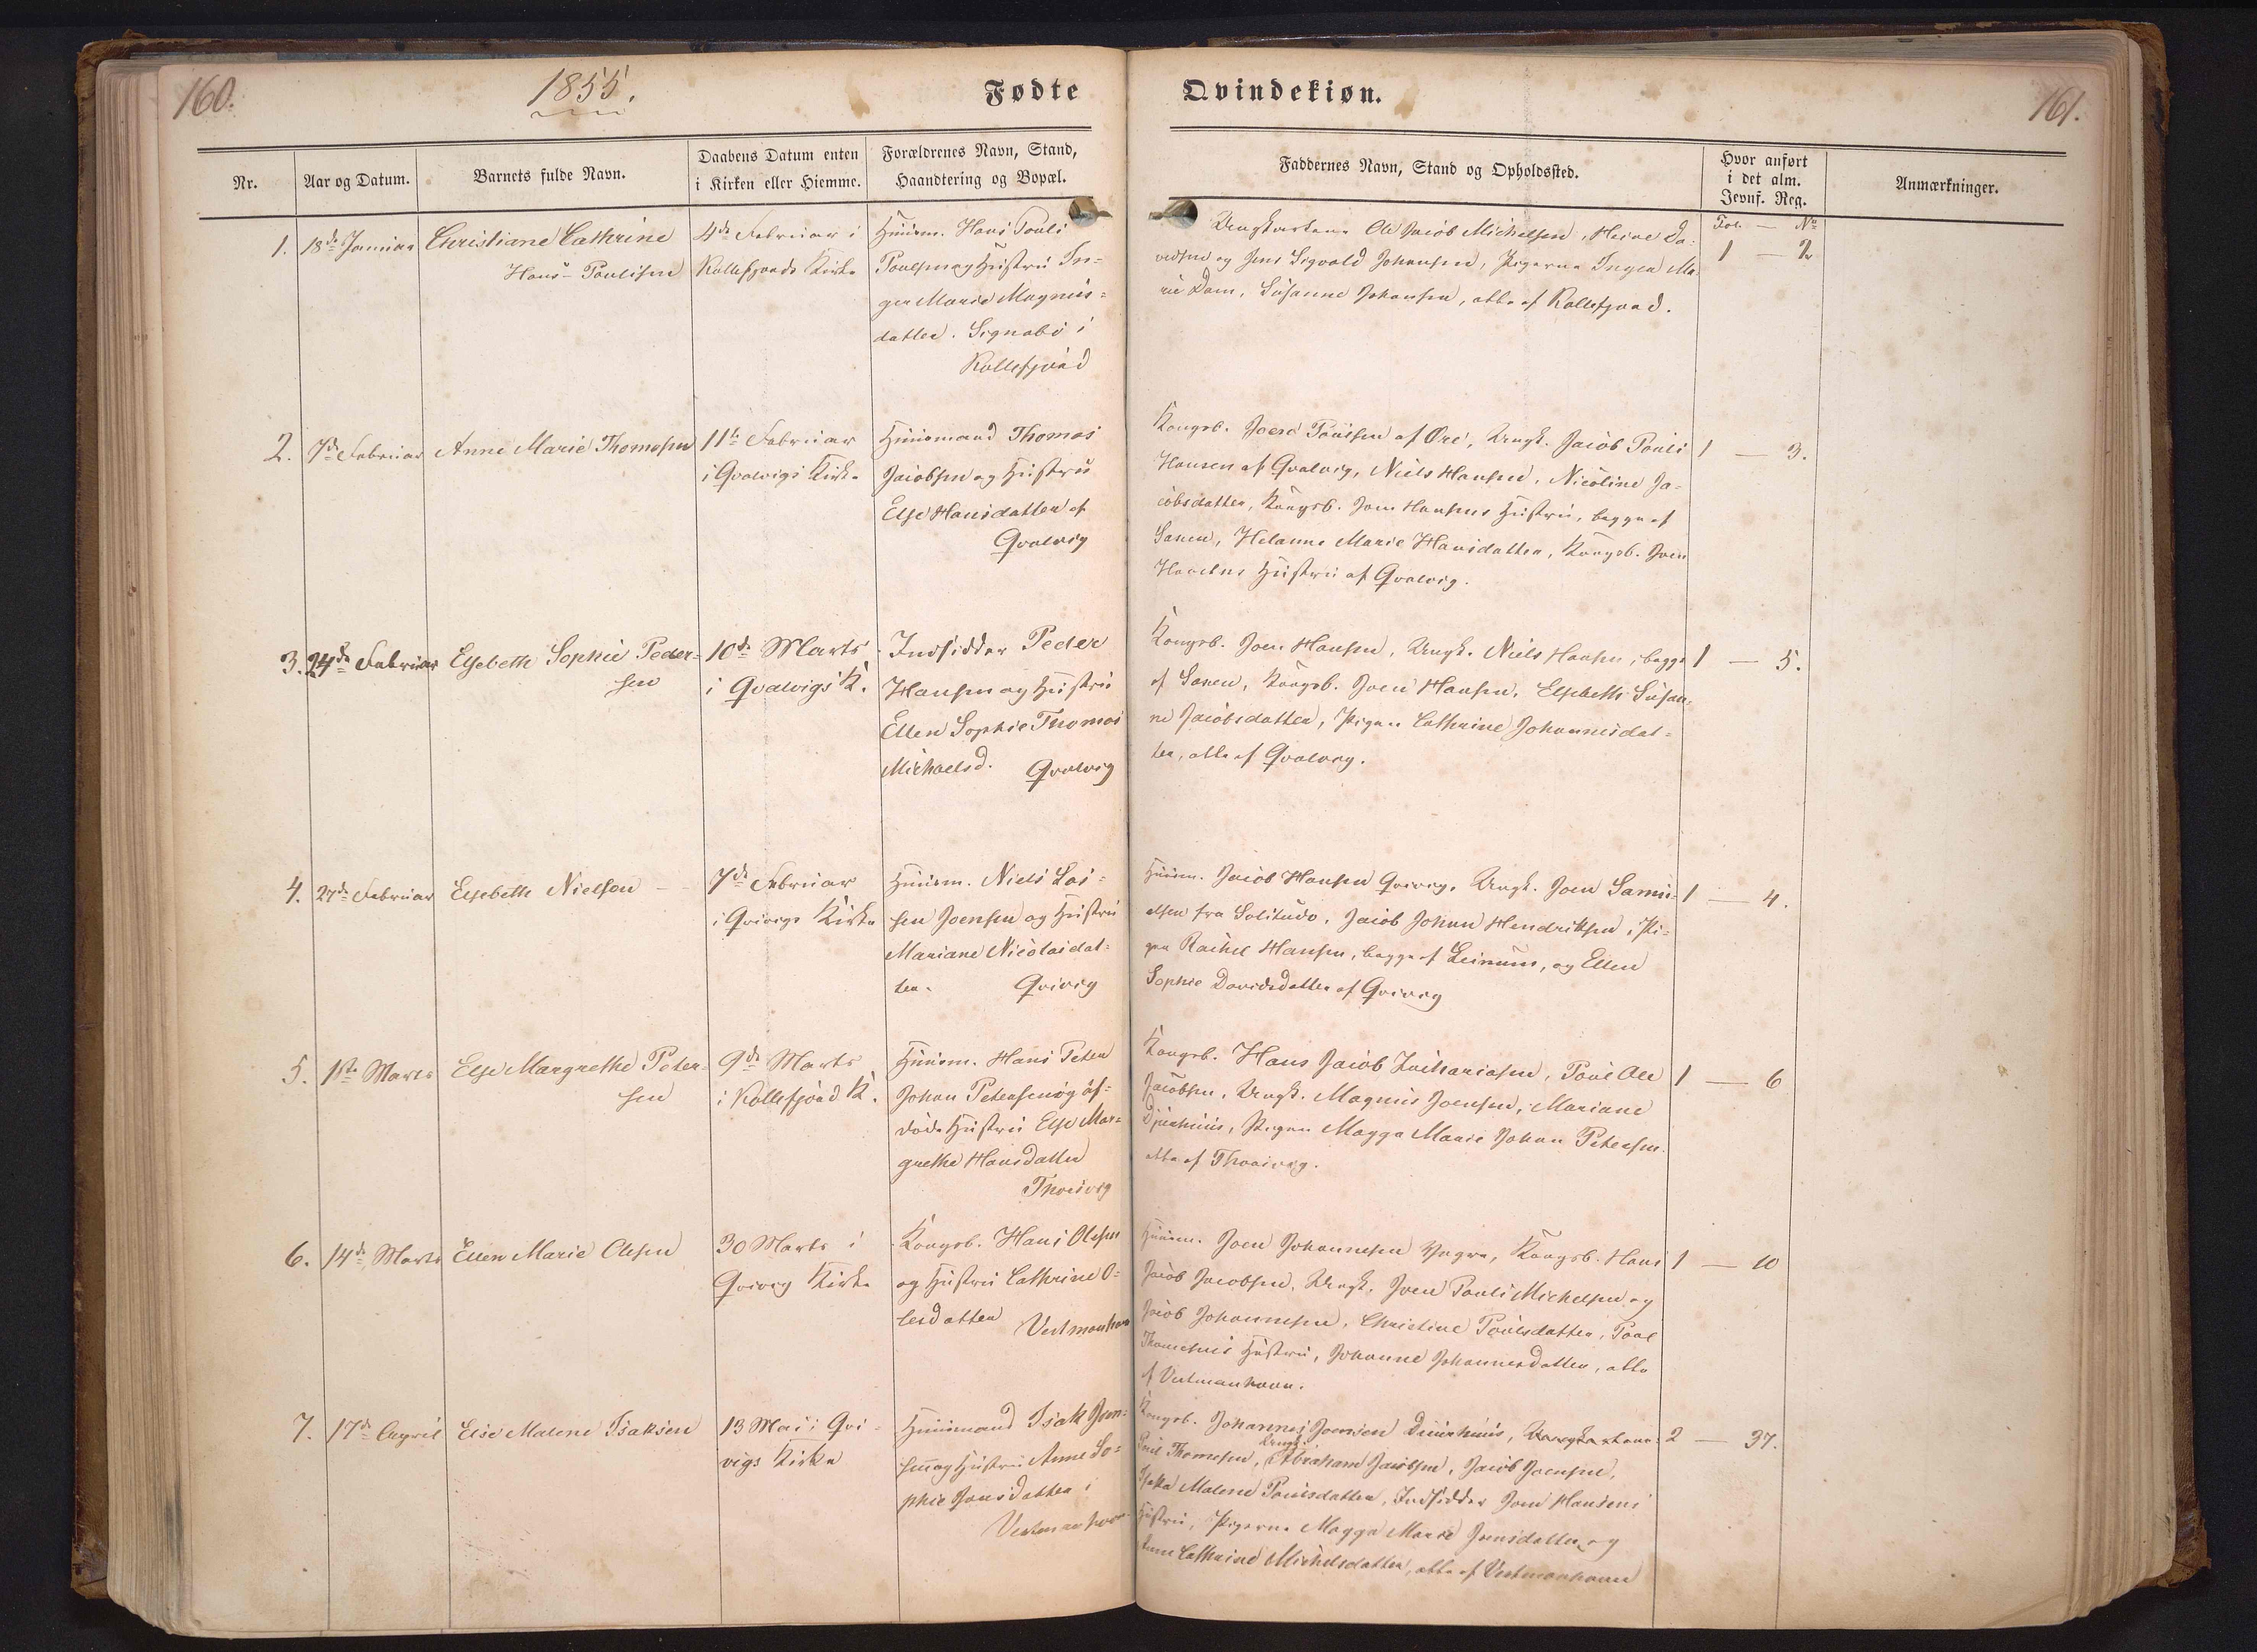 160.
1855.
Fødte
Nr.
Aar og Datum.
Barnets fulde Navn.
Daabens Datum enten
i Kirken eller Hiemme.
Forældrenes Navn, Stand,
Haandtering og Bopæl.
1.
18de Januar
Christiane Cathrine
Hans-Paulisen
4de Februar i
Kollefjords Kirke
Huusm. Hans Pouli
Poulsen og Hustru In-
ger Marie Magnus-
datter. Signabö i
Kollefjord
2.
7de Februar
Anne Marie Thomsen
11te Februar
i Qvalvigs Kirke
Huusmand Thomas
Jacobsen og Hustru
Else Hansdatter af
Qvalvig
3.
24de Februar
Elsebeth Sophie Peder-
sen
10de Marts
i Qvalvigs K.
Indsidder Peder
Hansen og Hustru
Ellen Sophie Thomas
Michaelsd. Qvalvig
4.
27de Februar
Elsebeth Nielsen
7de Februar
i Qvivigs Kirke
Huusm. Niels Las-
sen Joensen og Hustru
Mariane Nicolaidat-
ter. Qvivig
5.
1ste Marts
Else Margrethe Peter-
sen
9de Marts
i Kollefjord K.
Huusm. Hans Peter
Johan Petersen og af-
döde Hustru Else Mar-
grethe Hansdatter
Thorsvig
6.
14de Marts
Ellen Marie Olesen
30 Marts i
Qvivig Kirke
Kongsb. Hans Olesen
og Hustru Cathrine O-
lesdatter Vestmanhavn
7.
17de April
Else Malene Isaksen
13 Mai i Qvi-
vigs Kirke
Huusmand Isak Joen-
sen og Hustru Anne So-
phie Joensdatter i
Vestmanhavn
Qvindekiøn.
161.
Faddernes Navn, Stand og Opholdssted.
Hvor anført
i det alm.
Jevnf. Reg.
Anmærkninger.
Fol. — No
Ungkarlene Ole Jacob Michelsen, Heine Da-
vidsen og Jens Sigvald Johansen, Pigerne Inger Ma-
rie Dam, Susanne Johansen, alle af Kollefjord.
1 — 2
Kongsb. Joen Poulsen af Öre, Ungk. Jacob Pouli
Hansen af Qvalvig, Niels Hansen, Nicoline Ja-
cobsdatter, Kongsb. Joen Hansens Hustru, begge af
Saxen, Helanne Marie Hansdatter, Kongsb. Joen
Hustru af Qvalvig.
1 — 3.
Kongsb. Joen Hansen, Ungk. Niels Hansen, begge
af Saxen, Kongsb. Joen Hansen, Elsebeth Susan-
ne Jacobsdatter, Pigen Cathrine Johannesdat-
ter, alle af Qvalvig.
1 — 5.
Huusm. Jacob Hansen Qvivig, Ungk. Joen Samu-
elsen fra Solitude, Jacob Johan Hendriksen, Pi-
gen Rachel Hansen, begge af Leinum, og Ellen
Sophie Davidsdatter af Qvivig
1 — 4.
Kongsb. Hans Jacob Zachariasen, Poul Ole
Jacobsen, Ungk. Magnus Joensen, Mariane
Djurhuus, Pigen Magga Marie Johan Petersen
alle af Thorsvig.
1 — 6
Huusm. Joen Johannesen Kongsb. Hans
Jacob Jacobsen, Ungk. Joen Pouli Michelsen og
Jacob Johannesen, Christine Poulsdatter, Poul
Thomsens Hustru, Johanne Johannesdatter, alle
af Vestmanhavn.
1 — 10
Kongsb. Johannes Joensen Duurhuus,
Poul Thomsen, Ungk. Abraham Jacobsen, Jacob Joensen,
Malene Poulsdatter, Indsidder Joen Hansens
Hustru, Pigerne Magga Marie Joensdatter og
Anne Cathrine Michelsdatter, alle af Vestmanhavn
2 — 37.